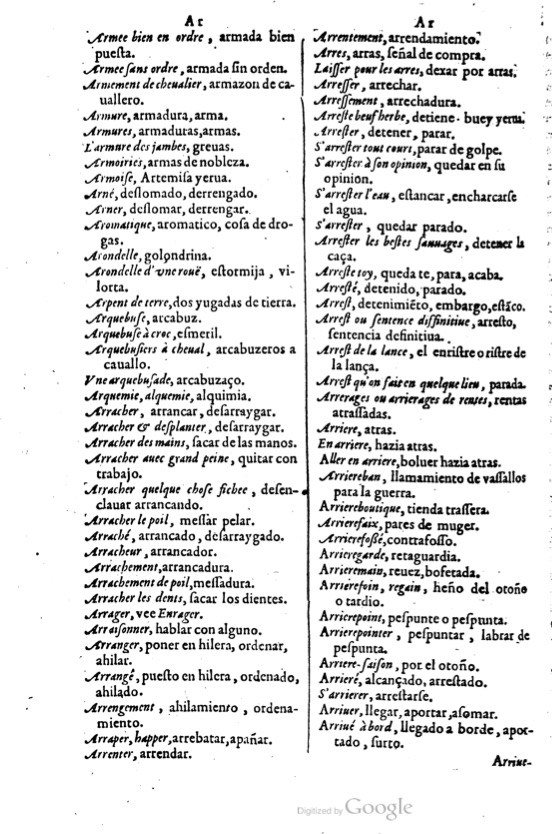 Ar
Armee bien en ordre, armada bien
puesta.
Armee sans ordre, armada sin orden.
Armement de cheualier, armazon de ca-
uallero.
Armure, armadura, arma.
Armures, armaduras, armas.
L'armure des jambes, greuas.
Armoiries, armas de nobleza.
Armoise, Artemisa yerua.
Arné, deslomado, derrengado.
Arner, deslomar, derrengar.
Aromatique, aromatico, cosa de dro-
gas.
Arondelle, golondrina.
Arondelle d'vne rouë, estormija, vi-
lorta.
Arpent de terre, dos yugadas de tierra.
Arquebuse, arcabuz.
Arquebuse à croc, esmeril.
Arquebusiers à cheual, arcabuzeros a
cauallo.
Vne arquebusade, arcabuzaço.
Arquemie, alquemie, alquimia.
Arracher, arrancar, desarraygar.
Arracher & desplanter, desarraygar.
Arracher des mains, sacar de las manos.
Arracher auec grand peine, quitar con
trabajo.
Arracher quelque chose fichee, desen-
clauar arrancando.
Arracher le poil, messar pelar.
Arraché, arrancado, desarraygado.
Arracheur, arrancador.
Arrachement, arrancadura.
Arrachement de poil, messadura.
Arracher les dents, sacar los dientes.
Arrager, vee Enrager.
Arraisonner, hablar con alguno.
Arranger, poner en hilera, ordenar,
ahilar.
Arrangé, puesto en hilera, ordenado,
ahilado.
Arrengement, ahilamiento, ordena-
miento.
Arraper, happer, arrebatar, apañar.
Arrenter, arrendar.
Ar
Arrentement, arrendamiento.
Arres, arras, señal de compra.
Laisser pour les arres, dexar por arras.
Arresser, arrechar.
Arressement, arrechadura.
Arreste beuf herbe, detiene buey yerua.
Arrester, detener, parar.
S'arrester tout cours, parar de golpe.
S'arrester à son opinion, quedar en su
opinion.
S'arrester l'eau, estancar, encharcarse
el agua.
S'arrester, quedar parado.
Arrester les bestes sauuages, detener la
caça.
Arreste toy, queda te, para, acaba.
Arresté, detenido, parado.
Arrest, detenimiẽto, embargo, estãco.
Arrest ou sentence diffinitiue, arresto,
sentencia definitiua.
Arrest de la lance, el enristre o ristre de
la lança.
Arrest qu'on fait en quelque lieu, parada.
Arrerages ou arrierages de rentes, rentas
atrassadas.
Arriere, atras.
En arriere, hazia atras.
Aller en arriere, boluer hazia atras.
Arriereban, llamamiento de vassallos
para la guerra.
Arriereboutique, tienda trassera.
Arrierefaix, pares de muger.
Arrierefossé, contrafosso.
Arrieregarde, retaguardia.
Arrieremain, reuez, bofetada.
Arrierefoin, regain, heño del otoño
o tardio.
Arrierepoint, pespunte o pespunta.
Arrierepointer, pespuntar, labrar de
pespunta.
Arriere-saison, por el otoño.
Arrieré, alcançado, arrestado.
S'arrierer, arrestarse.
Arriuer, llegar, aportar, asomar.
Arriué à bord, llegado a borde, apor-
tado, surto.
Arriue-
Digitized by Google